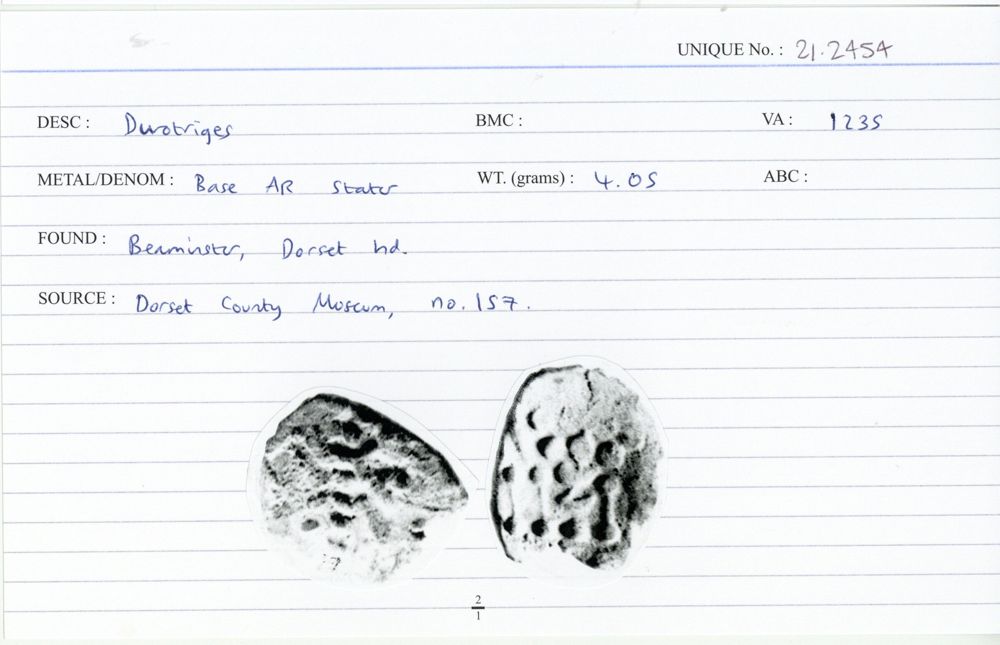 UNIQUE No. : 21.2454
DESC : Durotriges BMC : VA : 1235
METAL/DENOM : Base AR Stater WT. (grams) : 4.05 ABC :
FOUND : Beaminster, Dorset hd.
SOURCE : Dorset County Museum, no. 157.
2
1